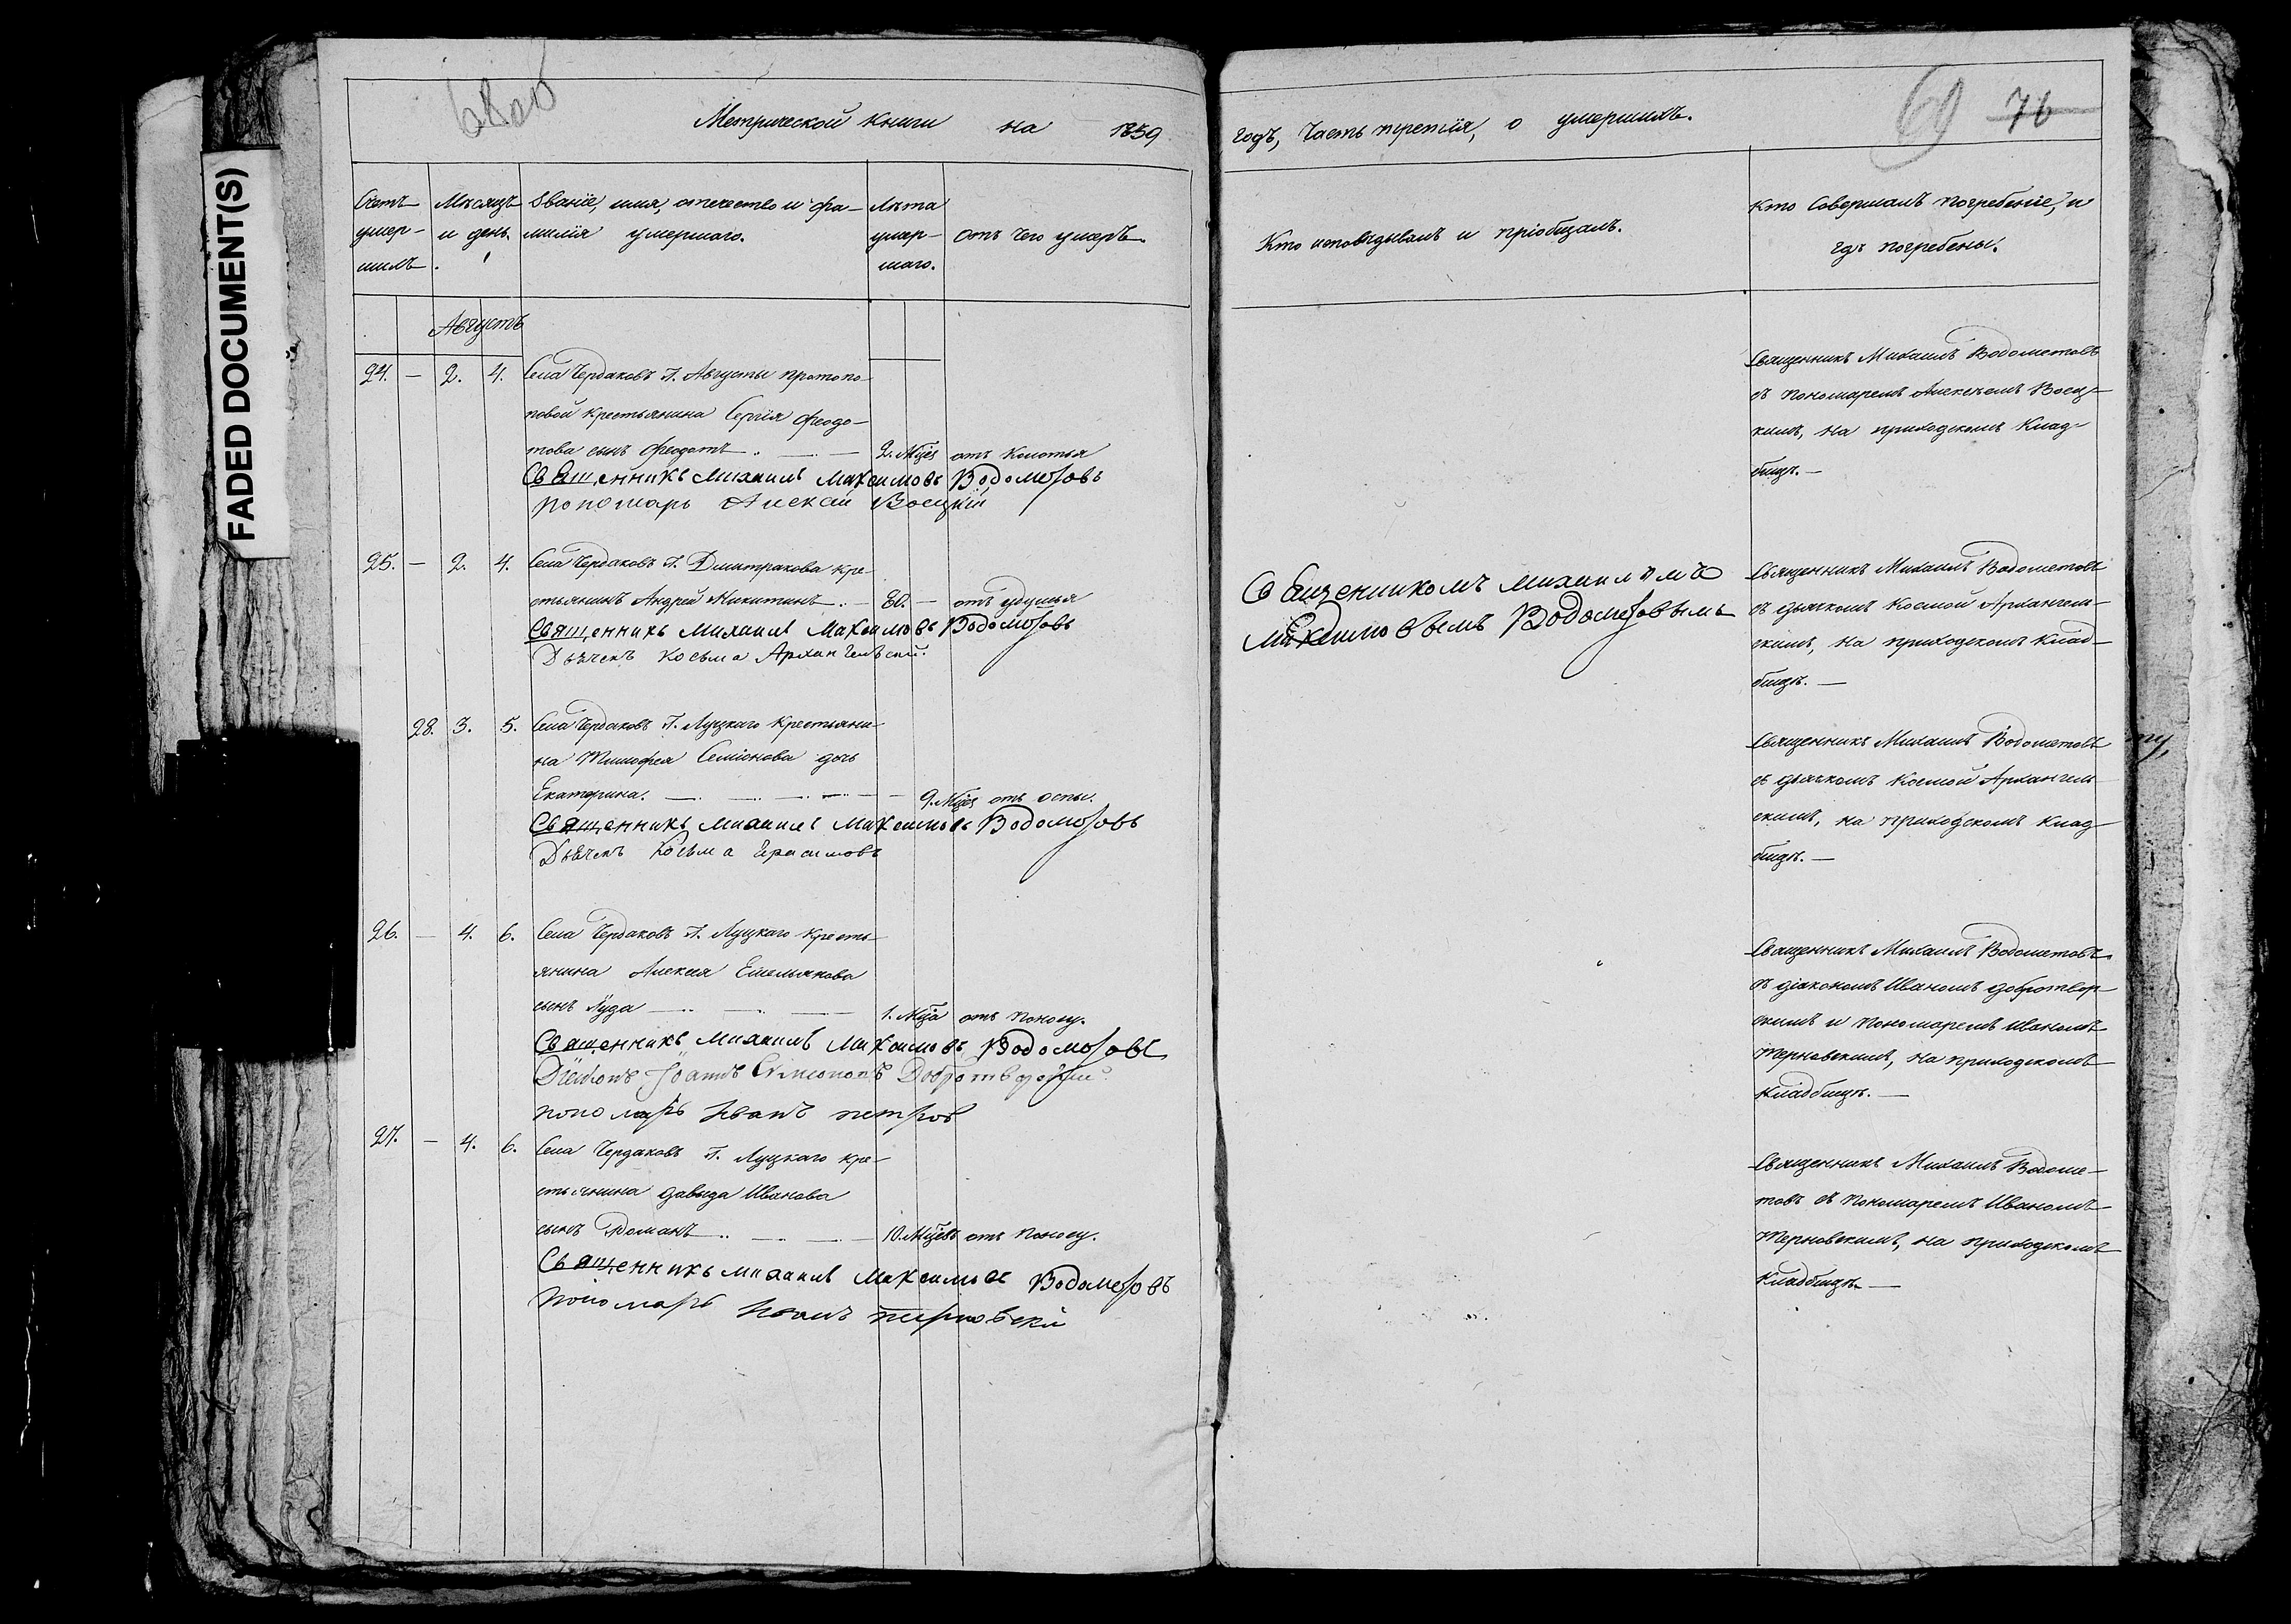 68 об
Метрической книги на 1859
годъ, Часть третія, о умершихъ.
69 76
FADED DOCUMENT(S)
Счетъ умер-шихъ.
Мѣсяцъ и день.
Званіе, имя, отечество и фа-
милія умершаго.
Лѣта умер-шаго.
Отъ чего умеръ.
Кто исповѣдывалъ и пріобщалъ.
Кто совершалъ погребеніе, и
гдѣ погребены.
Августъ
24. — 2. 4. Села Чердаковъ Г. Августы протопо-
повой крестьянина Сергія Ѳеодо-
това сынъ Ѳеодотъ 2. Мцъ отъ колотья
Священникъ Михаилъ Максимовъ Водометовъ
Пономарь Алексѣй Воецкій
Священникъ Михаилъ Водометовъ
съ пономаремъ Алексѣемъ Воец-
кимъ, на приходскомъ клад-
бищѣ. —
25. — 2. 4. Села Чердаковъ Г. Дмитракова кре-
стьянинъ Андрей Никитинъ. 80. — отъ удушья
Священникъ Михаилъ Максимовъ Водометовъ
Дьячекъ Косьма Архангельскій.
Священникомъ Михаиломъ
Максимовымъ Водометовымъ
Священникъ Михаилъ Водометовъ
съ дьячкомъ Космой Архангель-
скимъ, на приходскомъ клад-
бищѣ. —
28. 3. 5. Села Чердаковъ Г. Луцкаго крестьяни-
на Тимофея Семіонова дочь
Екатерина. 9. Мцъ отъ оспы.
Священникъ Михаилъ Максимовъ Водометовъ
Дьячекъ Косьма Ерасимовъ
Священникъ Михаилъ Водометовъ
съ дьячкомъ Космой Архангель
скимъ, на приходскомъ клад
бищѣ. —
26. — 4. 6. Села Чердаковъ Г. Луцкаго кресть-
янина Алексея Емельянова
сынъ Іуда 1. Мца отъ поносу.
Священникъ Михаилъ Максимовъ Водометовъ
Діаконъ Іоаннъ Симеоновъ Добротворскій
пономарь Иванъ петровъ
Священникъ Михаилъ Водометовъ
съ діакономъ Иваномъ добротвор-
скимъ и пономаремъ Иваномъ
Терновскимъ, на приходскомъ
кладбищѣ. —
27. — 4. 6. Села Чердаковъ Г. Луцкаго кре-
стьянина давыда Иванова
сынъ Романъ 10. Мцевъ отъ поносу.
Священникъ Михаилъ Максимовъ Водометовъ
Пономарь Иванъ терновскій
Священникъ Михаилъ Водоме-
товъ съ пономаремъ Иваномъ
Терновскимъ, на приходскомъ
кладбищѣ. —